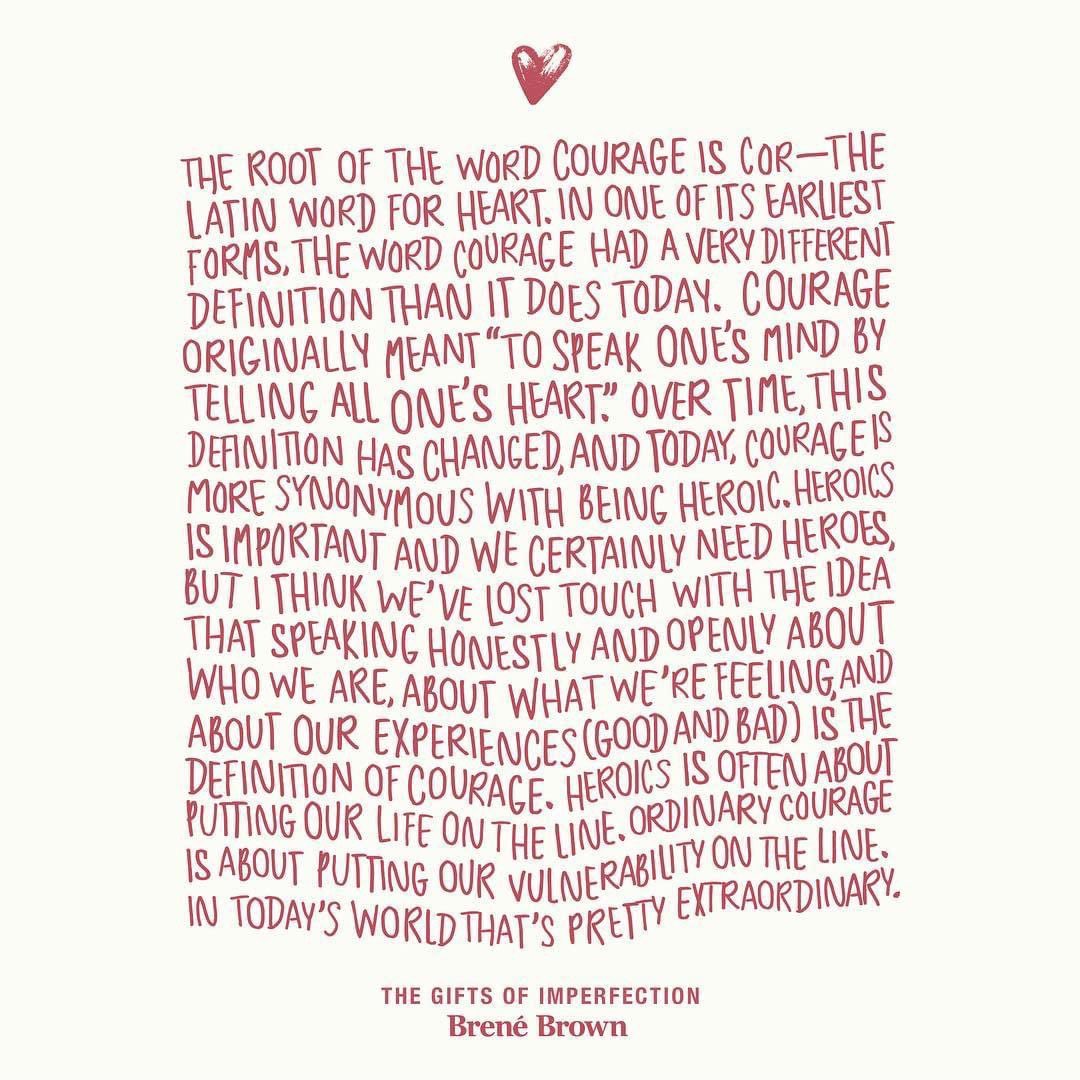 THE ROOT OF THE WORD COURAGE IS COR—THE
LATIN WORD FOR HEART. IN ONE OF ITS EARLIEST
FORMS, THE WORD COURAGE HAD A VERY DIFFERENT
DEFINITION THAN IT DOES TODAY. COURAGE
ORIGINALLY MEANT “TO SPEAK ONE'S MIND BY
TELLING ALL ONE'S HEART.” OVER TIME, THIS
DEFINITION HAS CHANGED, AND TODAY, COURAGE IS
MORE SYNONYMOUS WITH BEING HEROIC. HEROICS
IS IMPORTANT AND WE CERTAINLY NEED HEROES,
BUT I THINK WE'VE LOST TOUCH WITH THE IDEA
THAT SPEAKING HONESTLY AND OPENLY ABOUT
WHO WE ARE, ABOUT WHAT WE'RE FEELING, AND
ABOUT OUR EXPERIENCES (GOOD AND BAD) IS THE
DEFINITION OF COURAGE. HEROICS IS OFTEN ABOUT
PUTTING OUR LIFE ON THE LINE. ORDINARY COURAGE
IS ABOUT PUTTING OUR VULNERABILITY ON THE LINE.
IN TODAY'S WORLD THAT'S PRETTY EXTRAORDINARY.
THE GIFTS OF IMPERFECTION
Brené Brown